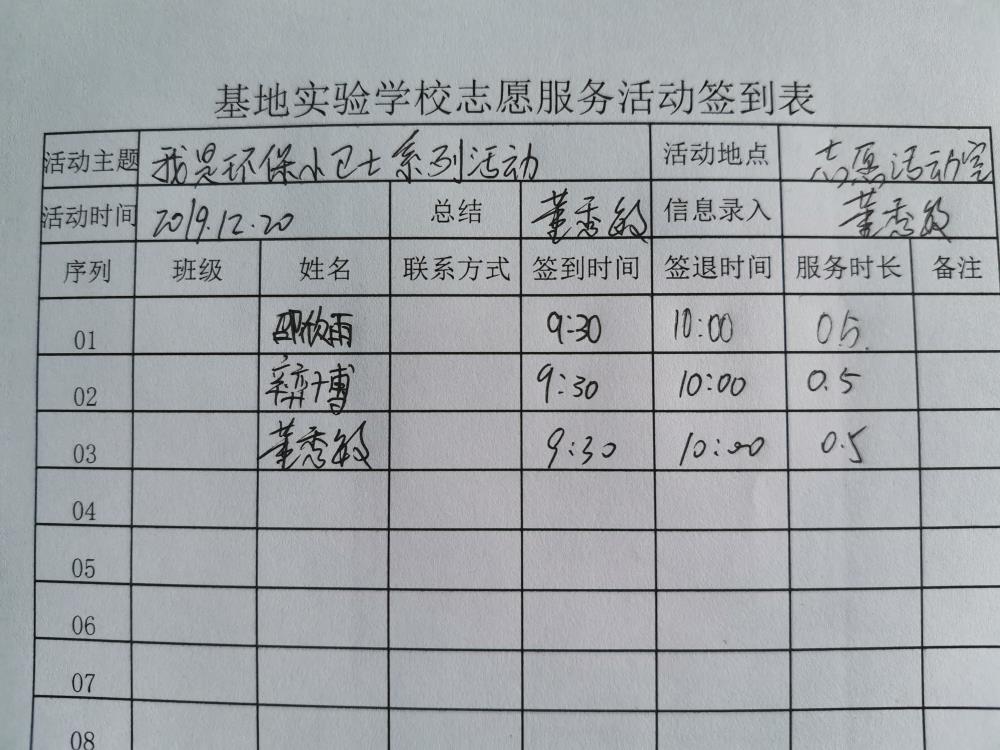 基地实验学校志愿服务活动签到表
活动主题 我是环保小卫士系列活动 活动地点 志愿活动室
活动时间 2019.12.20 总结 董秀敏 信息录入 董秀敏
序列 班级 姓名 联系方式 签到时间 签退时间 服务时长 备注
01 邵欣雨 9:30 10:00 0.5
02 9:30 10:00 0.5
03 董秀敏 9:30 10:00 0.5
04
05
06
07
08